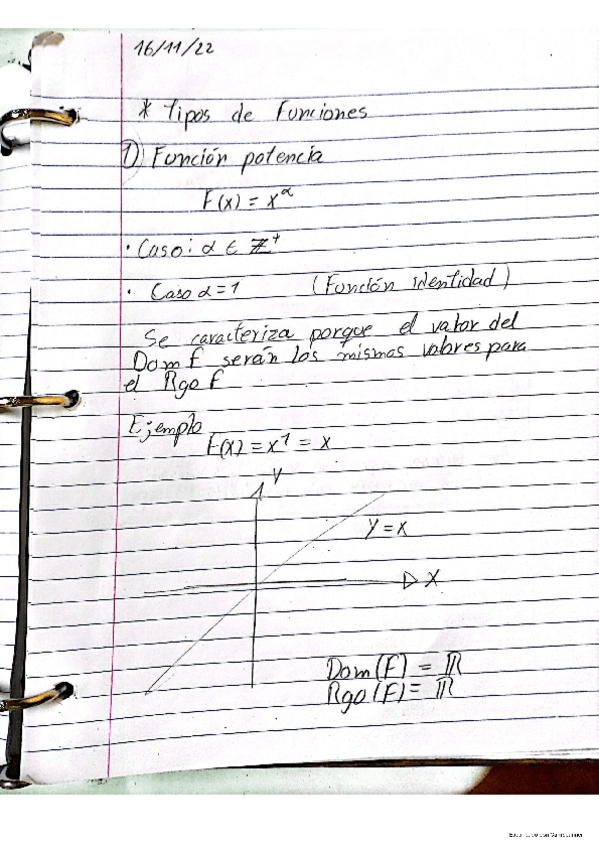 16/11/22
* Tipos de Funciones
1) Función potencia
F(x) = x^α
· Caso: α ∈ ℤ⁺
· Caso α = 1 (Función identidad)
Se caracteriza porque el valor del
Dom f serán los mismos valores para
el Rgo f
Ejemplo
F(x) = x¹ = x
Y
Y = X
X
Dom(F) = ℝ
Rgo(F) = ℝ